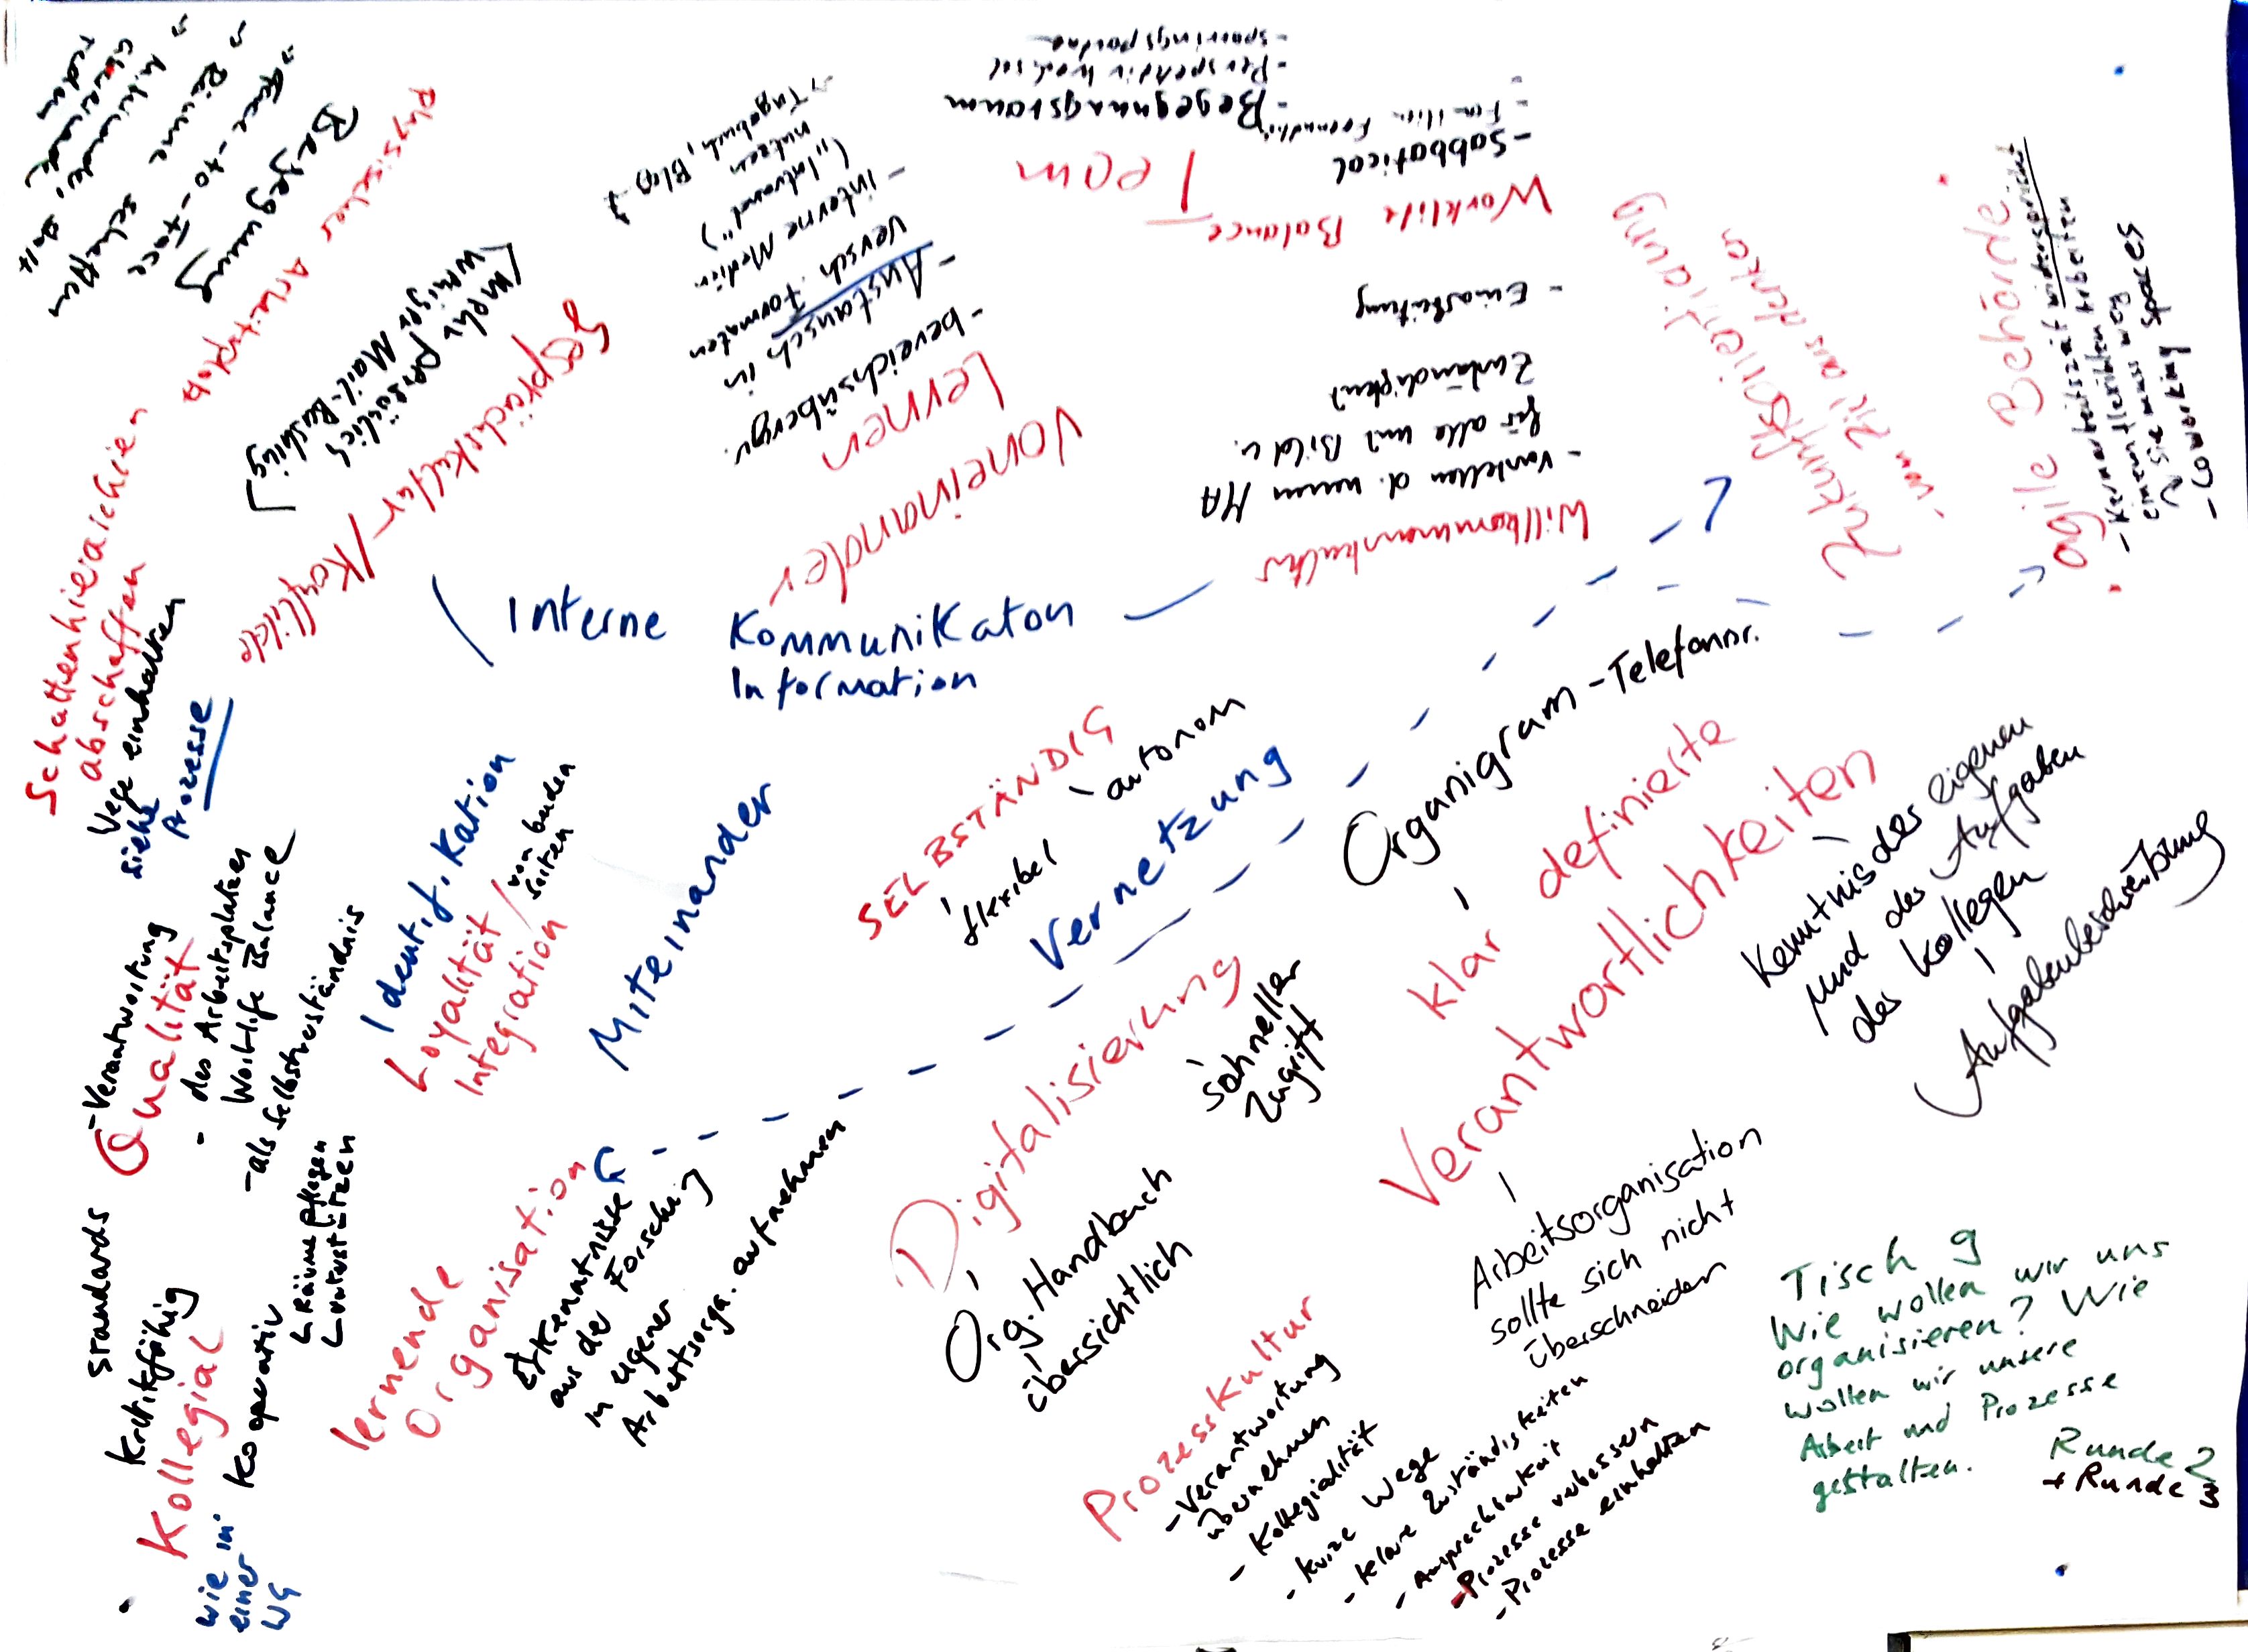 Tisch 9
Wie wollen wir uns
organisieren? Wie
wollen wir unsere
Arbeit und Prozesse
gestalten.
Runde 2
+ Runde 3
Interne Kommunikaton
Information
Vernetzung
SELBSTÄNDIG
- autonom
- flexibel
Miteinander
Identifikation
Loyalität /
Integration
von beiden
Seiten
Organigram - Telefonnr.
klar definierte
Verantwortlichkeiten
Kenntnis des eigenen
und des Aufgaben
des Kollegen
Aufgabenbeschreibung
Arbeitsorganisation
sollte sich nicht
überschneiden
Digitalisierung
schneller
Zugriff
Org. Handbuch
übersichtlich
Prozesskultur
- Verantwortung
übernehmen
- Kollegialität
- kurze Wege
- klare Zuständigkeiten
- Ansprechbarkeit
- Prozesse verbessern
- Prozesse einhalten
lernende
Organisation
Erkenntnisse
aus der Forschung
in eigener
Arbeitsorga. aufnehmen
Standards
kritikfähig
Kollegial
kooperativ
wie in
einer
WG
- Verantwortung
Qualität
- des Arbeitsplatzes
Worklife Balance
- als Selbstverständnis
Räume pflegen
Schattenhieraichien
abschaffen
Wege einhalten
siehe
Prozesse
Gesprächskultur
/Konflikte
[mehr persönlich
weniger Mail-Bashing]
physisches Architektur
Begegnung
" face-to-face
" Räume schaffen
" miteinander, statt
übereinander
reden
Voneinander
Lernen
- bereichsübergr.
- Austausch in
versch. Formaten
- interne Medien
("Intranet")
nutzen
Tagebuch, Blog
Team
- Begegnungsraum
- Perspektivwechsel
- Sparringspartner
Worklife Balance
- Sabbatical
- Familien
Willkommenskultur
- Vorstellen d. neuen MA
für alle mit Bild u.
Zuständigkeit
- Einarbeitung
Zukunftsorientierung
vom Ziel aus denken
agile Behörde
- Coworking spaces